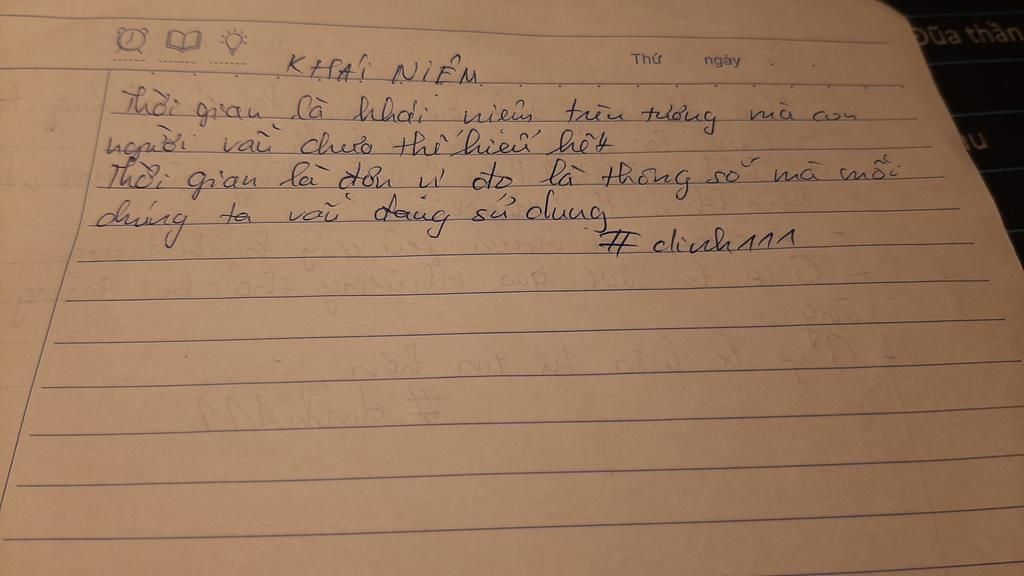 Đũa thần
Thứ ngày
KHÁI NIỆM
Thời gian là khái niệm trừu tượng mà con
người vẫn chưa thể hiểu hết
Thời gian là đơn vị đo là thông số mà mỗi
chúng ta vẫn đang sử dụng
# dinh111